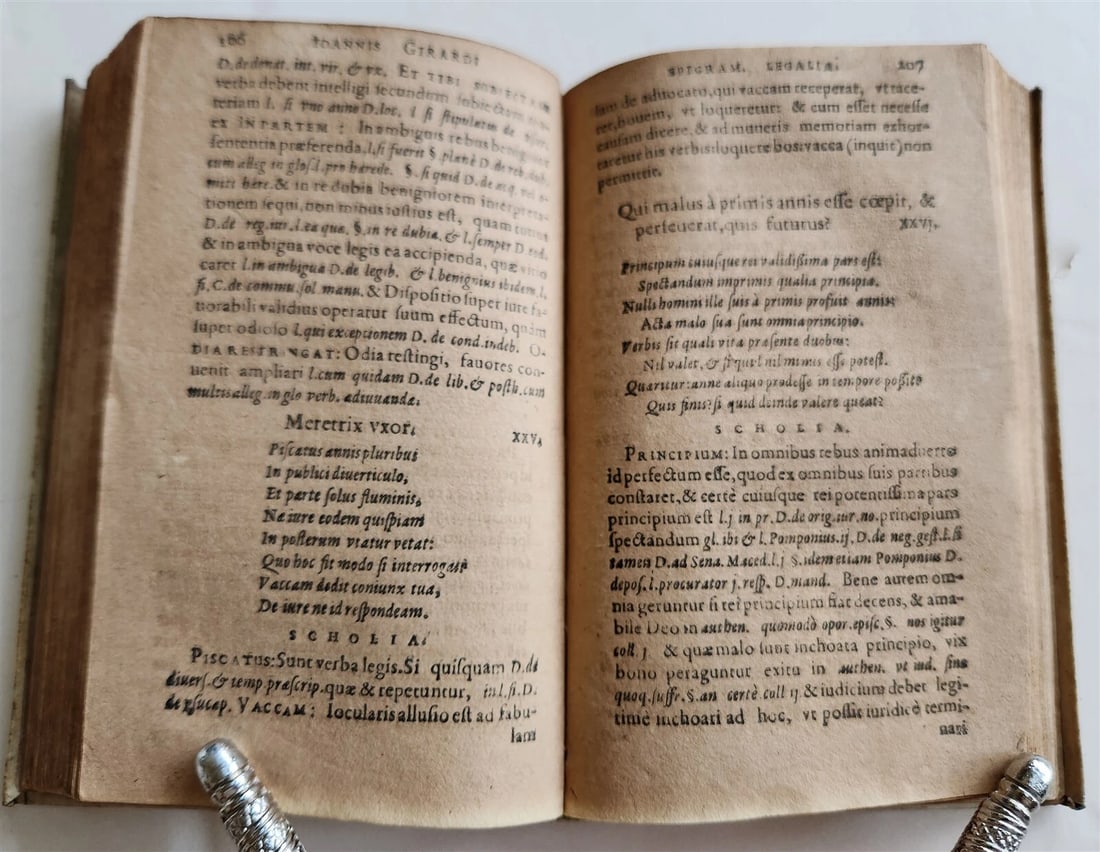 186 IOANNIS GIRARDI
D. de donat. int. vir. & vx. ET TIBI SVBIECTAM
verba debent intelligi secundum subiectam
teriam l. si vno anno D. loc. l si stipulatus de
ex IN PARTEM : In ambiguis rebus
sententia præferenda. l. si fuerit §. planè D. de reb. dub.
cum alleg in glos. l. pro herede. §. si quid D. de acq. vel o-
mitt here. & in re dubia benigniorem interpreta-
tionem sequi, non minus iustius est, quam tutius
D. de reg. iur. l. ea quæ. §. in re dubia. & l. semper D. eod.
& in ambigua voce legis ea accipienda, quæ vitio
caret l. in ambigua D. de legib. & l benignius ibidem. l.
fi. C. de commu. sol manu. & Dispositio super iure fa-
uorabili validius operatur suum effectum, quàm
super odioso l. qui exceptionem D. de cond. indeb. O-
DIA RESTRINGAT: Odia restingi, fauores con-
uenit ampliari l. cum quidam D. de lib. & posth. cum
multis alleg. in glo verb. adiuuanda.
Meretrix vxor. XXV.
Piscatus annis pluribus
In publici diuerticulo,
Et parte solus fluminis,
Ne iure eodem quispiam
In posterum vtatur vetat:
Quo hoc fit modo si interrogatis
Vaccam dedit coniunx tua,
De iure ne id respondeam.
SCHOLIA.
PISCATVS: Sunt verba legis. Si quisquam D. de
diuers. & temp præscrip. quæ & repetuntur, in l. si. D.
de vsucap. VACCAM: Iocularis allusio est ad fabu-
lam
EPIGRAM. LEGALIA. 207
lam de aduocato, qui vaccam receperat, vt tace-
ret, bouem, vt loqueretur: & cum esset necesse
causam dicere, & ad muneris memoriam exhor-
taretur his verbis: loquere bos: vacca (inquit) non
permittit.
Qui malus à primis annis esse cœpit, &
perseuerat, quis futurus? XXVI.
Principium cuiusque rei validissima pars est:
Spectandum imprimis qualia principia.
Nulli homini ille suis à primis profuit annis:
Acta malo sua sunt omnia principio.
Verbis sit quali vita præsente duobus:
Nil valet, & si quid nil minus esse potest.
Quæritur: anne aliquo prodesse in tempore possit?
Quis finis? si quid deinde valere queat?
SCHOLIA.
PRINCIPIUM: In omnibus rebus animaduerto
id perfectum esse, quod ex omnibus suis partibus
constaret, & certè cuiusque rei potentissima pars
principium est l. j in pr. D. de orig. iur. no. principium
spectandum gl. ibi & l. Pomponius. ij. D. de neg. gest. l. si
tamen D. ad Sena. Maced. l. j §. idem etiam Pomponius D.
depos. l. procurator j. resp. D. mand. Bene autem om-
nia geruntur si rei principium fiat decens, & ama-
bile Deo in authen. quomodò opor. episc. §. nos igitur
coll j. & quæ malo sunt inchoata principio, vix
bono peraguntur exitu in authen. vt iud. sine
quoq. suffr. §. an certè coll ij & iudicium debet legi-
timè inchoari ad hoc, vt possit iuridicè termi-
nari